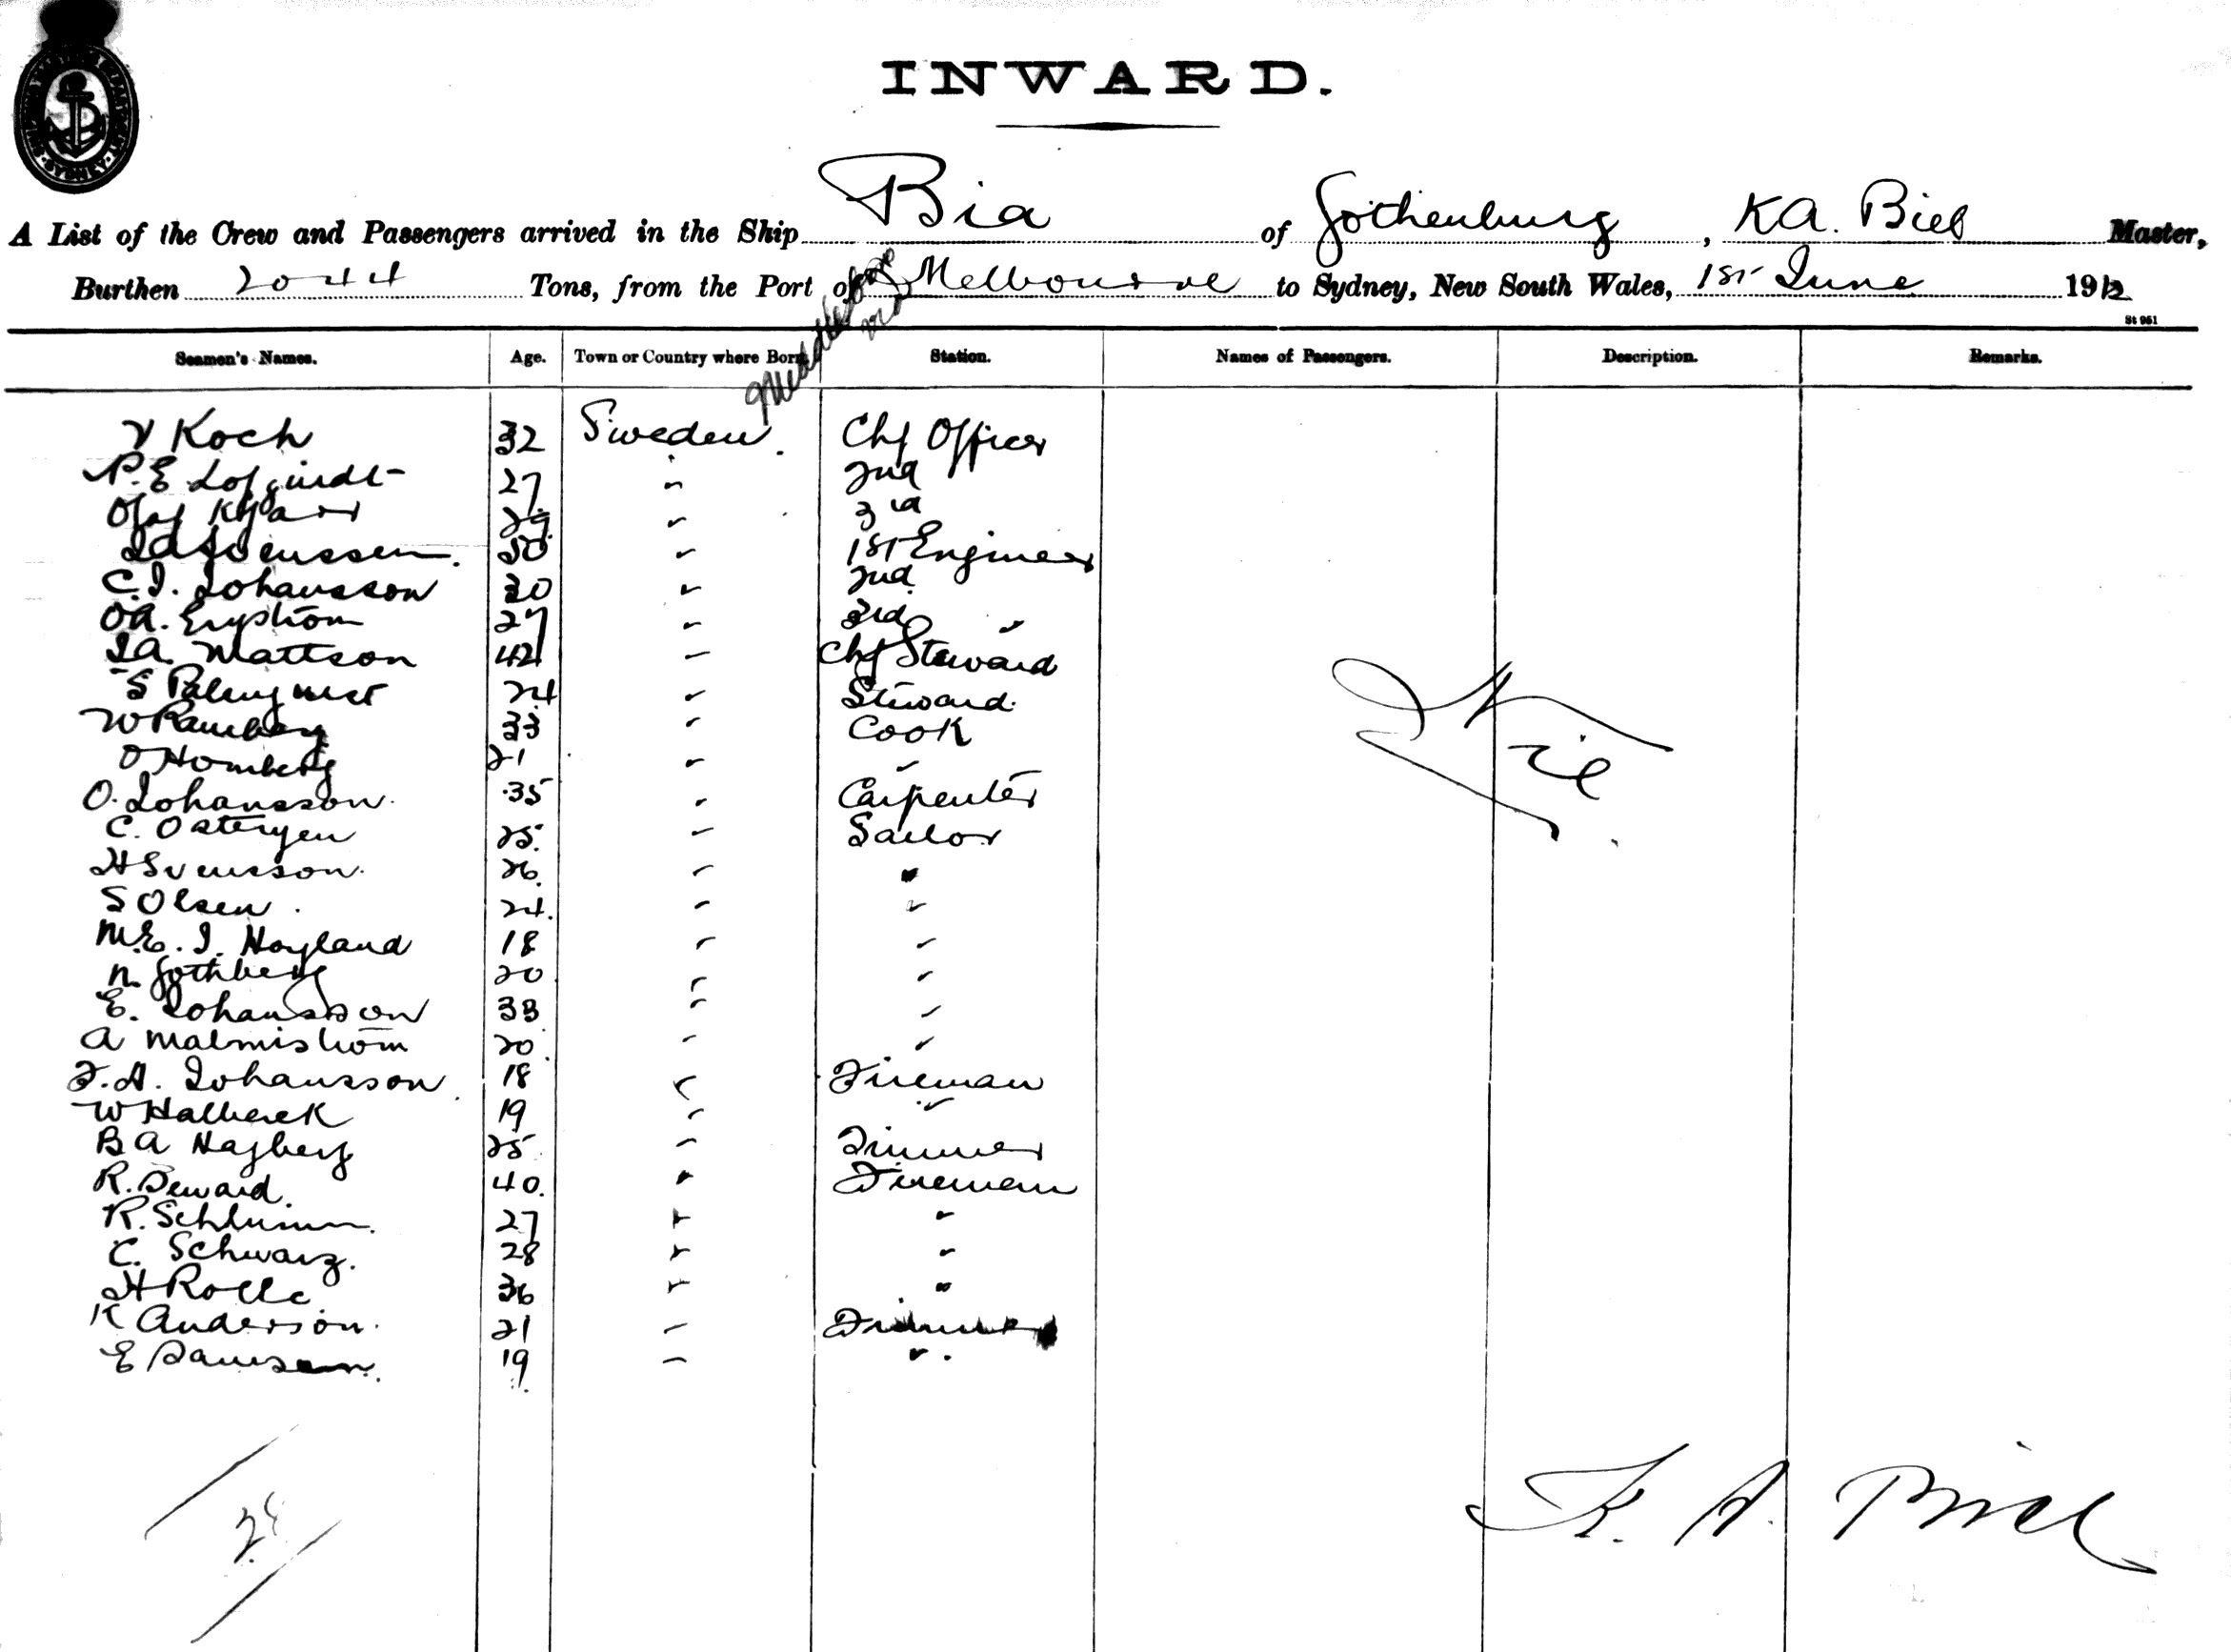 INWARD.
A List of the Crew and Passengers arrived in the Ship Bia of Gothenburg, KA. Biel Master,
Burthen 2044 Tons, from the Port of Melbourne to Sydney, New South Wales, 1st June 1912
St 951
Seamen's Names. Age. Town or Country where Born. Station. Names of Passengers. Description. Remarks.
V Koch 32 Sweden. Chf Officer
P.E 27 " 2nd
Olof 29 " 3rd
50 " 1st Engineer
C.J. Johansson 30 " 2nd
OA. Engstrom 27 " 3rd "
JA Mattson 42 " Chf Steward
S Palmquist 24 " Steward.
W Ramberg 33 " Cook
O Homberg 21 " "
O. Johansson. 35 " Carpenter
C. Ostergen 25. " Sailor
H Svensson. 26. " "
S Olsen. 24. " "
M.E. J. Hoyland 18 " "
N. Gothberg 20 " "
E. Johansson 33 " "
A Malmistrom 20 " "
F.A. Johansson 18 " Fireman
W Hallberek 19 " "
B A Hagberg 25 " Trimmer
R. Seward. 40. " Fireman
R. 27 " "
C. Schwarz. 28 " "
H Rolle 36 " "
K Anderson. 21 " Trimmer
E 19 " "
Nil.
K. A. Biel